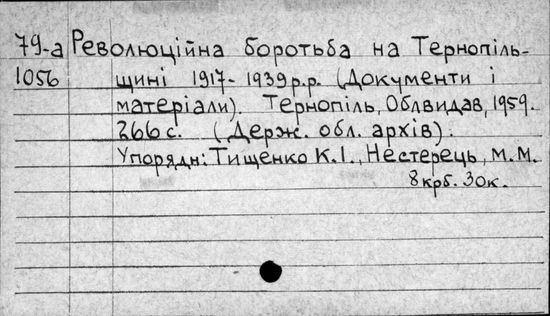 79-а Революційна боротьба на Тернопіль-
1056 щині 1917-1939 р.р. (Документи і
матеріали). Тернопіль, Облвидав, 1959.
266 с. (Держ. обл. архів).
Упорядн: Тищенко К.І., Нестерець, М.М.
8 крб. 30к.